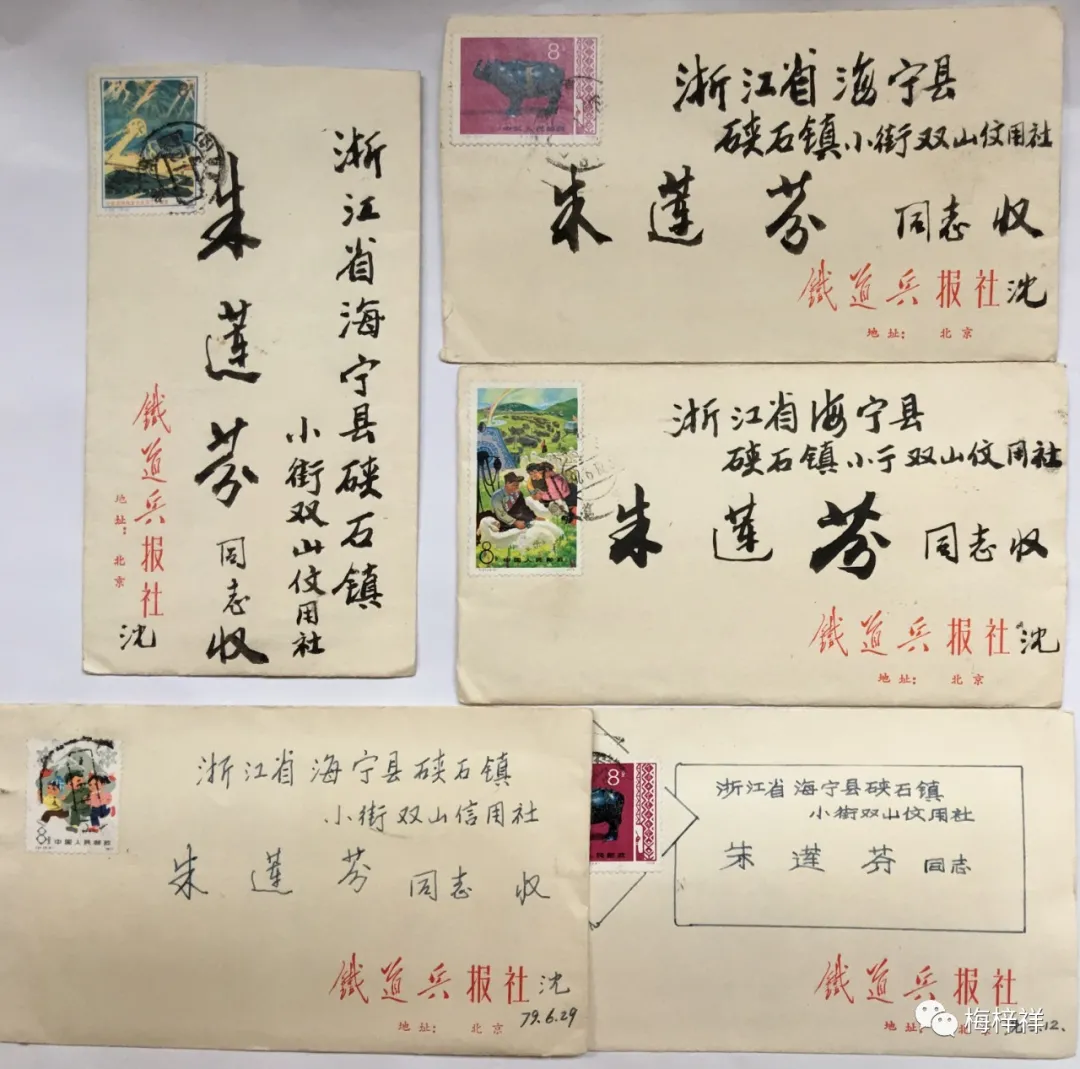 浙江省海宁县硖石镇
小街双山伩用社
朱莲芬同志收
鐵道兵报社沈
地址：北京
8
中国人民邮政
浙江省海宁县
硖石镇小街双山伩用社
朱莲芬同志收
鐵道兵报社沈
地址：北京
8
中国人民邮政
浙江省海宁县
硖石镇小亍双山伩用社
朱莲芬同志收
鐵道兵报社沈
地址：北京
8
中国人民邮政
浙江省海宁县硖石镇
小街双山信用社
朱莲芬同志收
鐵道兵报社沈
地址：北京
79.6.29
8
人民邮政
浙江省海宁县硖石镇
小街双山伩用社
朱莲芬同志
鐵道兵报社
地址：北京
12.
梅梓祥